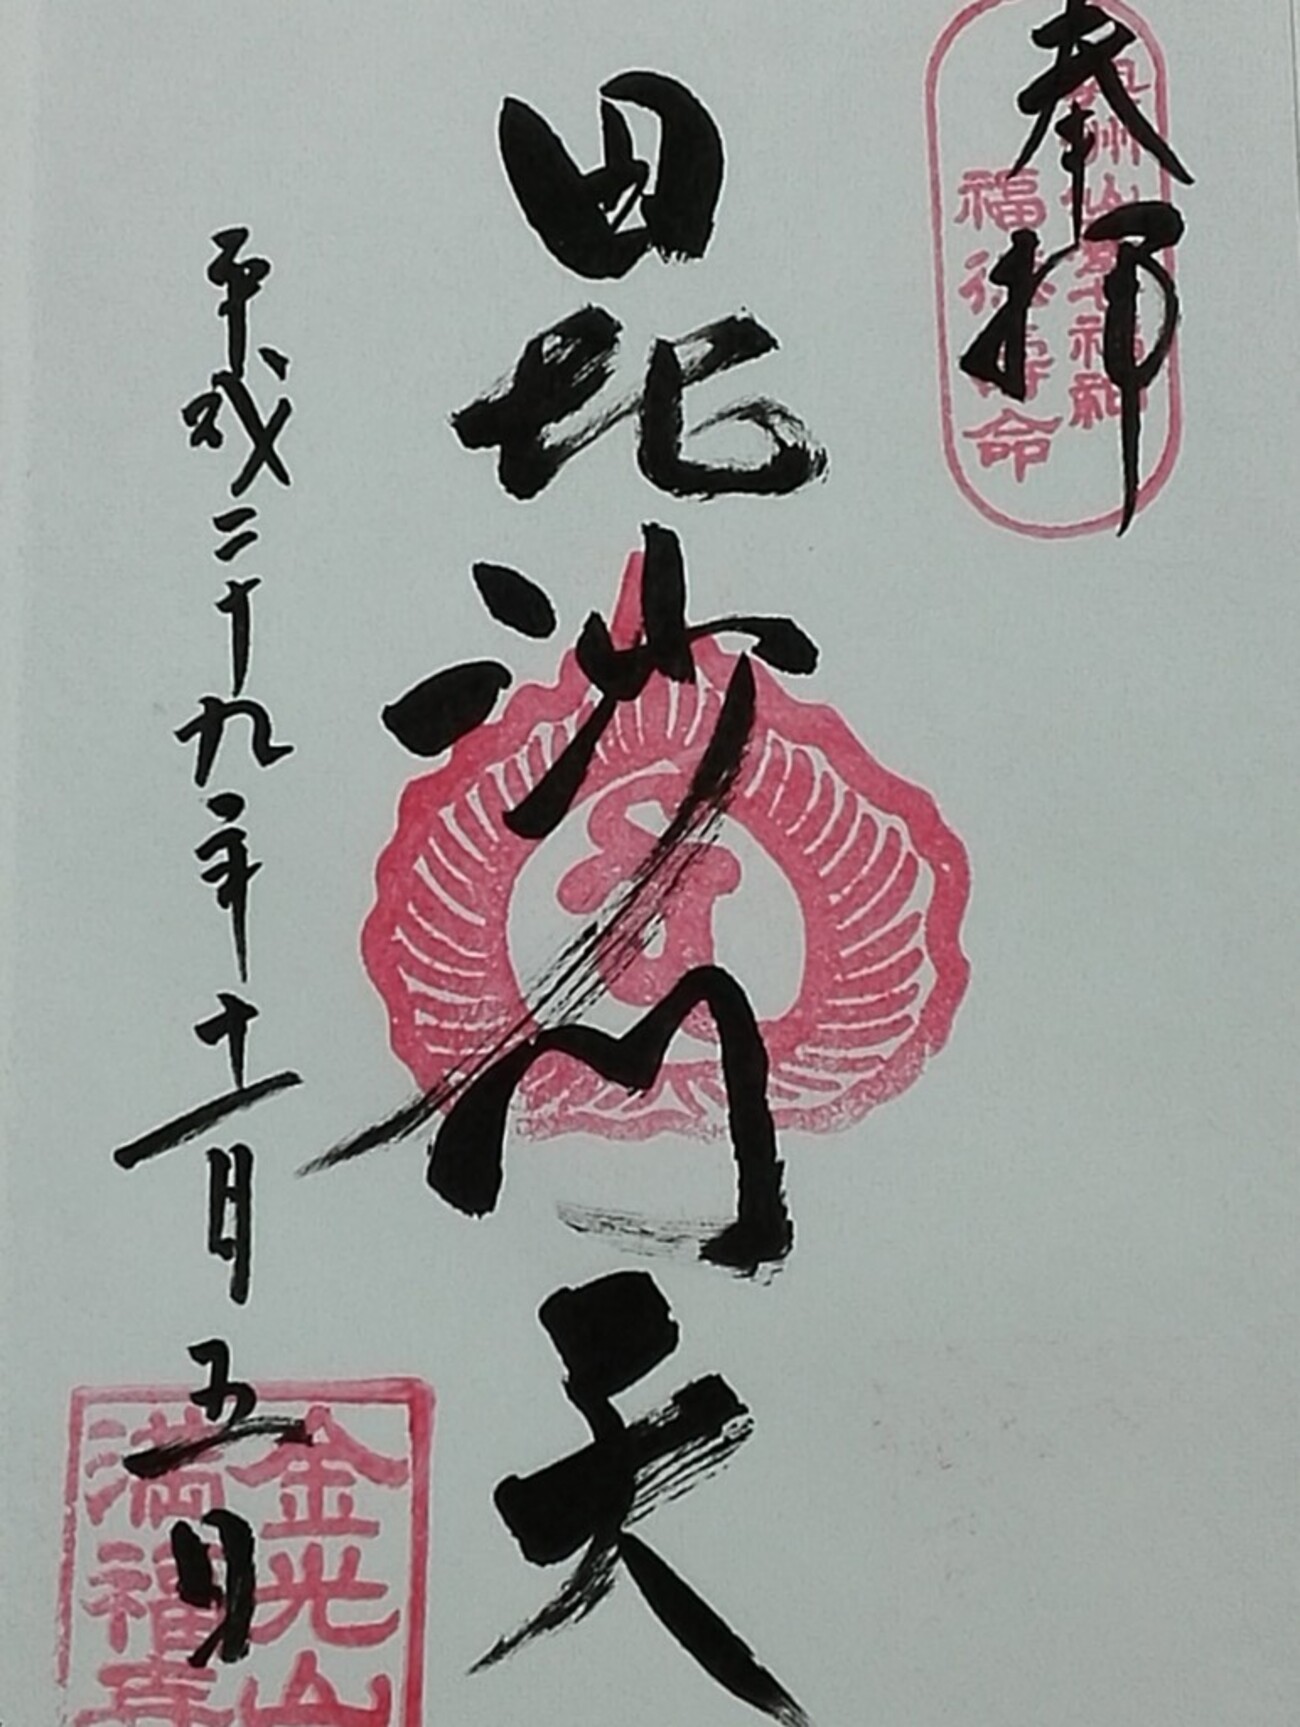 奉拝
奥州仙臺七福神
福徳壽命
毘沙門天
平成二十九年十一月五日
金光山
満福寺